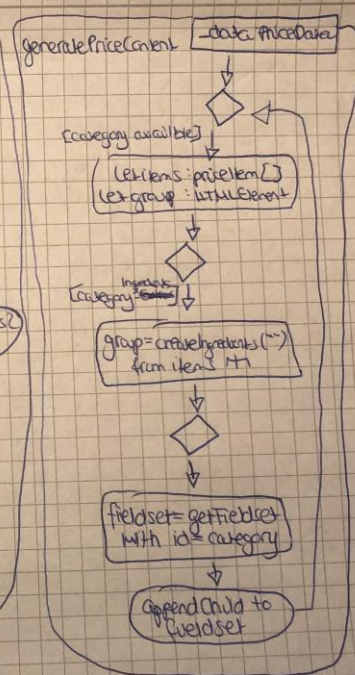 generatePriceContent _data: PriceData
[category availble]
let items: priceItem[]
let group: HTMLElement
Ingredients
[category=
group=createIngredients("")
from items
fieldset=getFieldset
with id=category
appendChild to
fieldset
s?